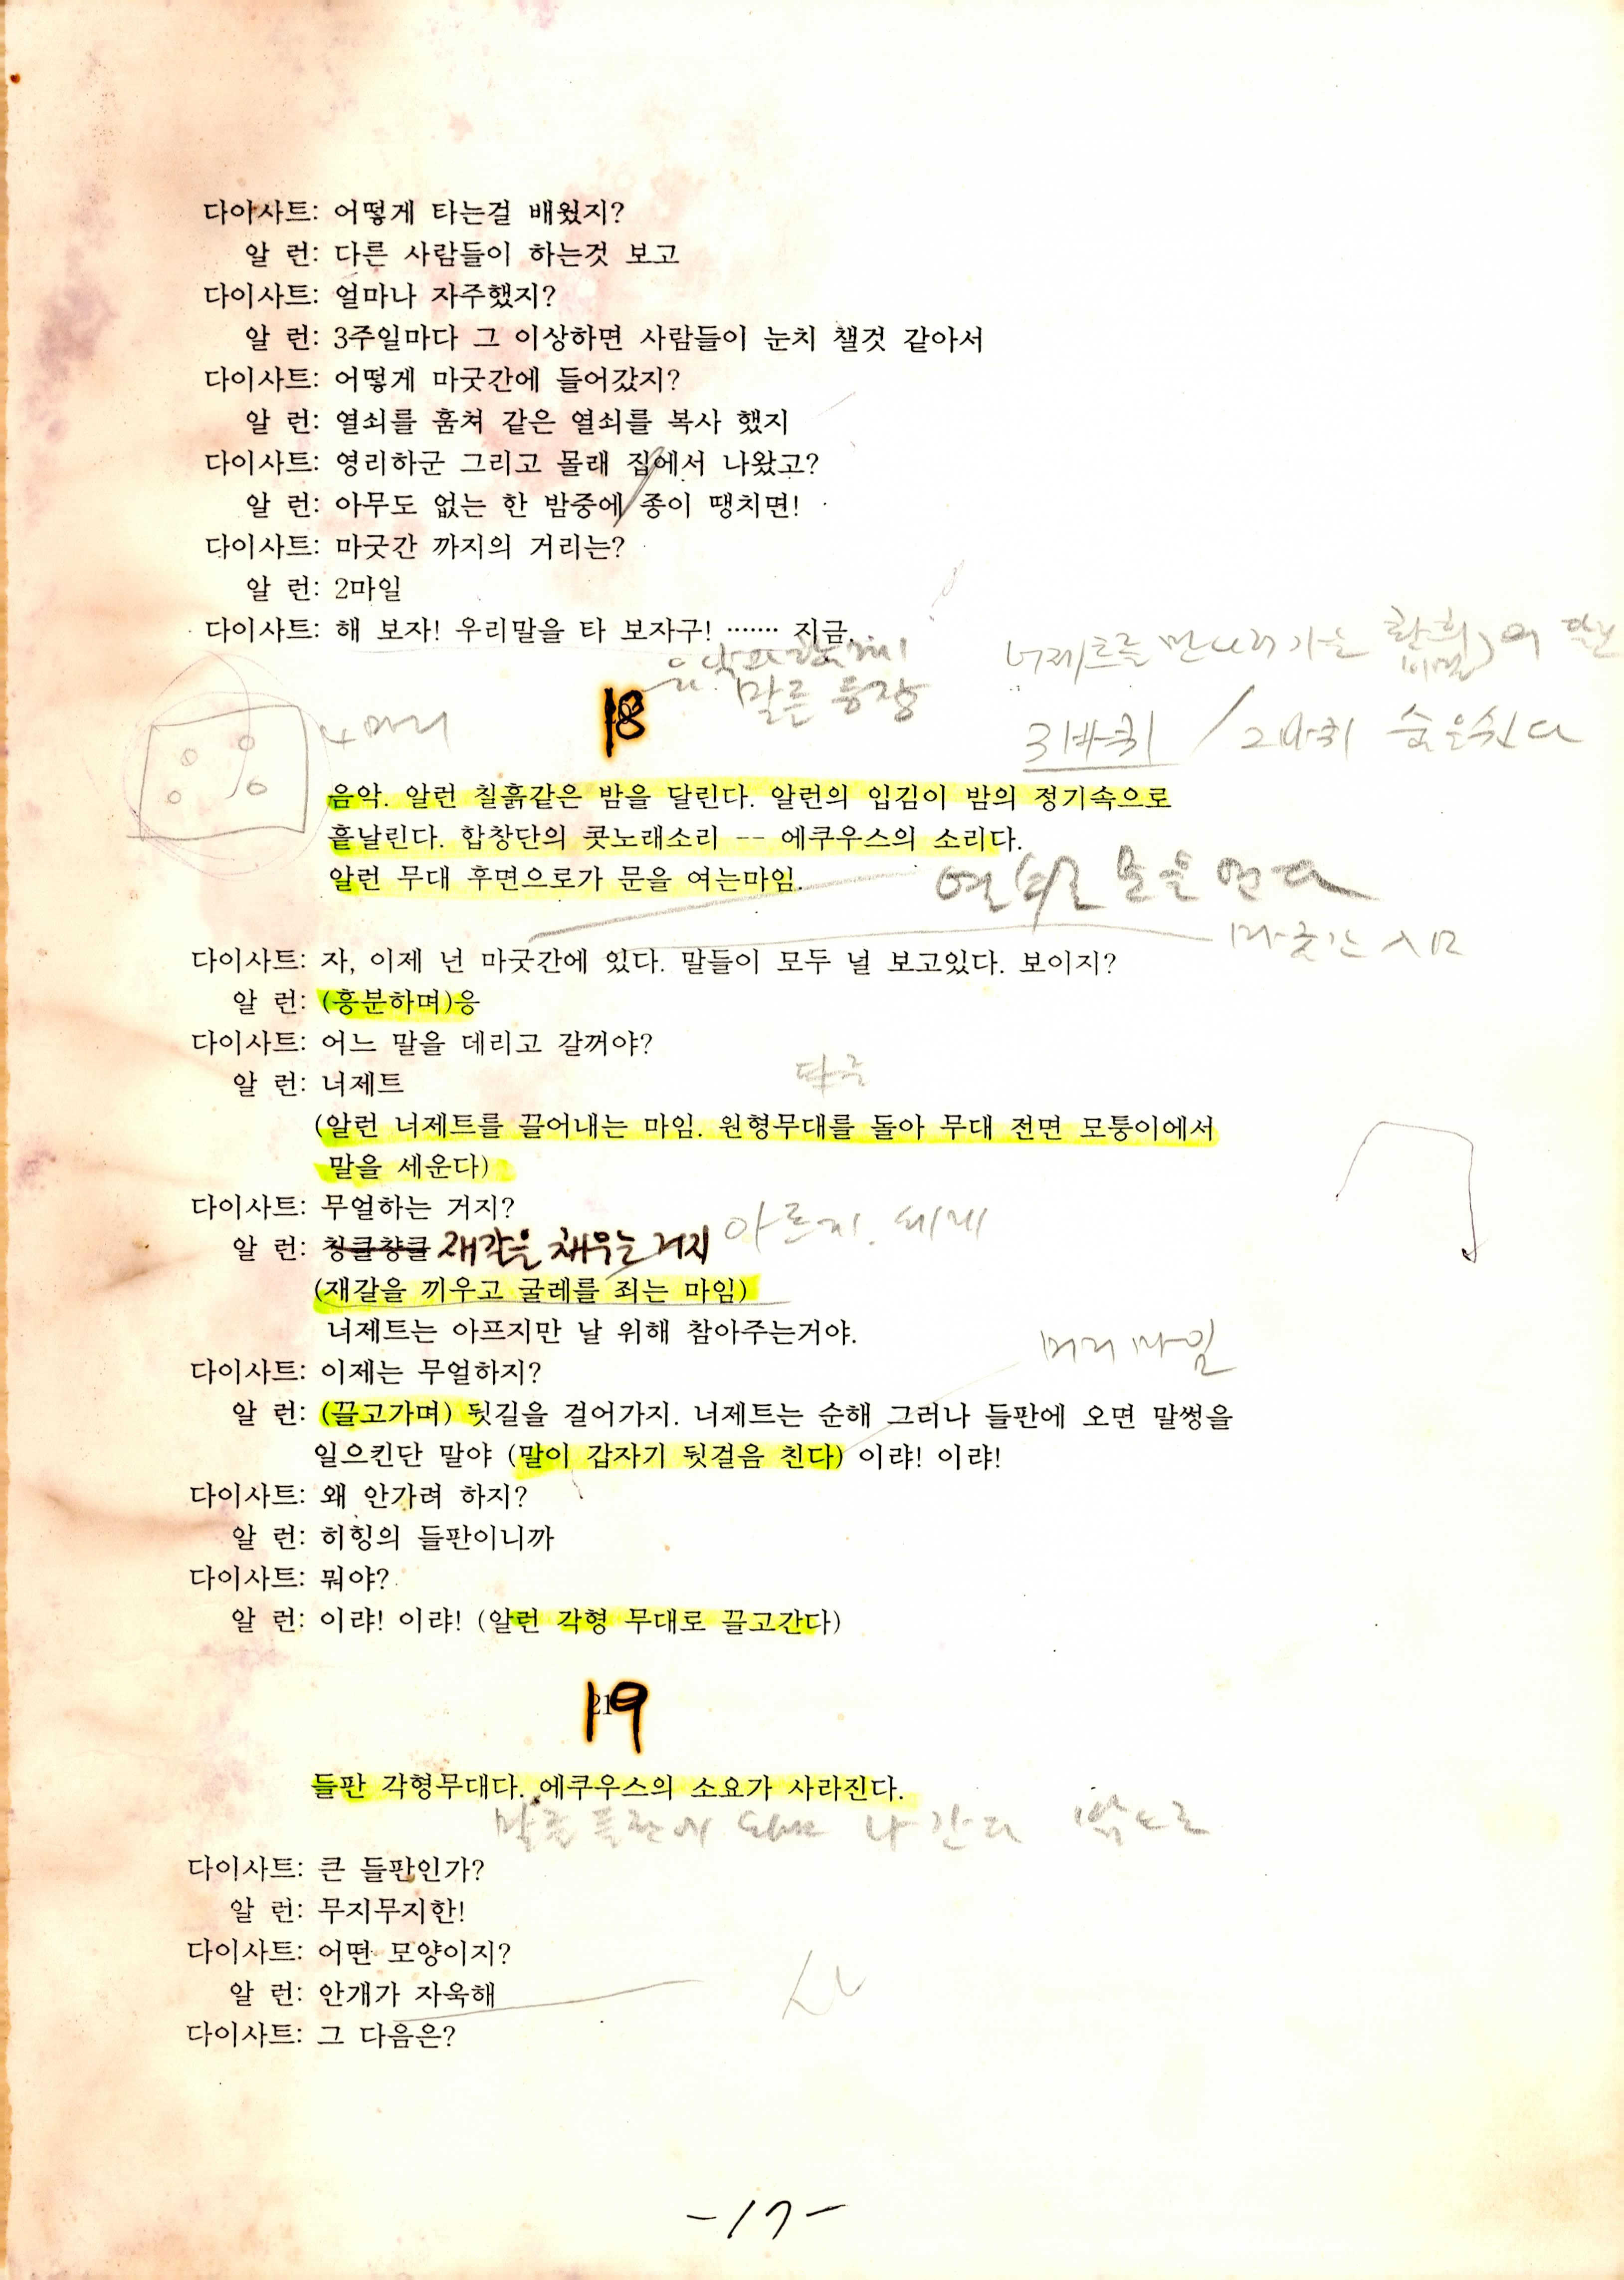 다이사트: 어떻게 타는걸 배웠지?
알 런: 다른 사람들이 하는것 보고
다이사트: 얼마나 자주했지?
알 런: 3주일마다 그 이상하면 사람들이 눈치 챌것 같아서
다이사트: 어떻게 마굿간에 들어갔지?
알 런: 열쇠를 훔쳐 같은 열쇠를 복사 했지
다이사트: 영리하군 그리고 몰래 집에서 나왔고?
알 런: 아무도 없는 한 밤중에 종이 땡치면!
다이사트: 마굿간 까지의 거리는?
알 런: 2마일
다이사트: 해 보자! 우리말을 타 보자구! ······· 지금.
너제트를 만나러 가는 환희
음악과 함께
말른 등장
18
4마리
3바퀴 / 2바퀴 숨을쉰다
음악. 알런 칠흙같은 밤을 달린다. 알런의 입김이 밤의 정기속으로
흩날린다. 합창단의 콧노래소리 -- 에쿠우스의 소리다.
알런 무대 후면으로가 문을 여는마임.
열쇠로 문을 연다
마굿간
다이사트: 자, 이제 넌 마굿간에 있다. 말들이 모두 널 보고있다. 보이지?
알 런: (흥분하며)응
다이사트: 어느 말을 데리고 갈꺼야?
알 런: 너제트
(알런 너제트를 끌어내는 마임. 원형무대를 돌아 무대 전면 모퉁이에서
말을 세운다)
다이사트: 무얼하는 거지?
알 런: 칭클챵클 재갈을 채우는 거지
(재갈을 끼우고 굴레를 죄는 마임)
너제트는 아프지만 날 위해 참아주는거야.
머리 마임
다이사트: 이제는 무얼하지?
알 런: (끌고가며) 뒷길을 걸어가지. 너제트는 순해 그러나 들판에 오면 말썽을
일으킨단 말야 (말이 갑자기 뒷걸음 친다) 이랴! 이랴!
다이사트: 왜 안가려 하지?
알 런: 히힝의 들판이니까
다이사트: 뭐야?
알 런: 이랴! 이랴! (알런 각형 무대로 끌고간다)
19
들판 각형무대다. 에쿠우스의 소요가 사라진다.
나간다 앞으로
다이사트: 큰 들판인가?
알 런: 무지무지한!
다이사트: 어떤 모양이지?
알 런: 안개가 자욱해
다이사트: 그 다음은?
-17-